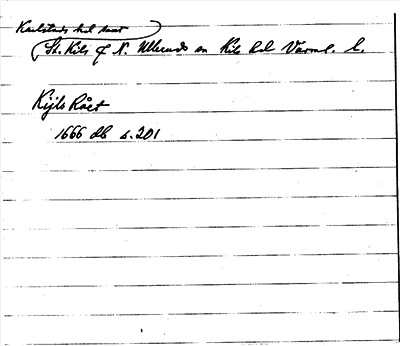 Karlstads hd samt
St. Kils o N. Ulleruds sn Kils hd Värml. l.
Kijls Rået
1666 db s. 201